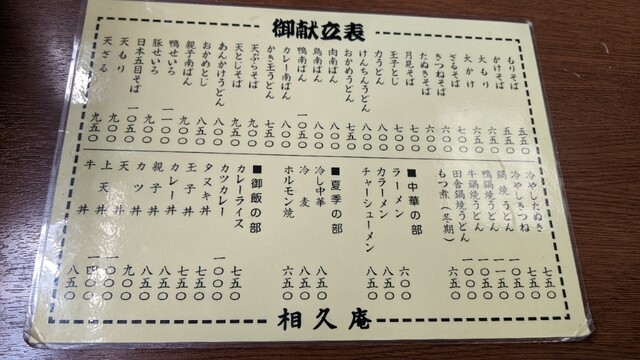 御献立表
もりそば 五五〇
かけそば 五五〇
大もり 六五〇
大かけ 六五〇
ざるそば 七〇〇
きつねそば 六〇〇
たぬきそば 六〇〇
月見そば 七〇〇
玉子とじ 七〇〇
力うどん 八〇〇
けんちんうどん 八〇〇
おかめうどん 七五〇
肉南ばん 八〇〇
鳥南ばん 八〇〇
鴨南ばん 一〇五〇
カレー南ばん 八〇〇
かき玉うどん 七五〇
天ぷらそば 九〇〇
天とじそば 九五〇
あんかけうどん 八五〇
おかめとじ 八五〇
親子南ばん 九〇〇
鴨せいろ 一一〇〇
豚せいろ 九〇〇
日本五目そば 一〇五〇
天もり 九〇〇
天ざる 九五〇
冷やしたぬき 七五〇
冷やしきつね 七五〇
鍋焼うどん 一〇五〇
鴨鍋焼うどん 一一五〇
牛鍋焼うどん 一〇五〇
田舎鍋焼うどん 一〇〇〇
もつ煮(冬期) 六五〇
■中華の部
ラーメン 六〇〇
力ラーメン 八五〇
チャーシューメン 八五〇
■夏季の部
冷し中華 八五〇
冷麦 八五〇
ホルモン焼 六五〇
■御飯の部
カレーライス 七五〇
カツカレー 一〇〇〇
タヌキ丼
玉子丼
カレー丼 八五〇
親子丼 八五〇
カツ丼
天丼
上天丼
牛丼 八五〇
相久庵